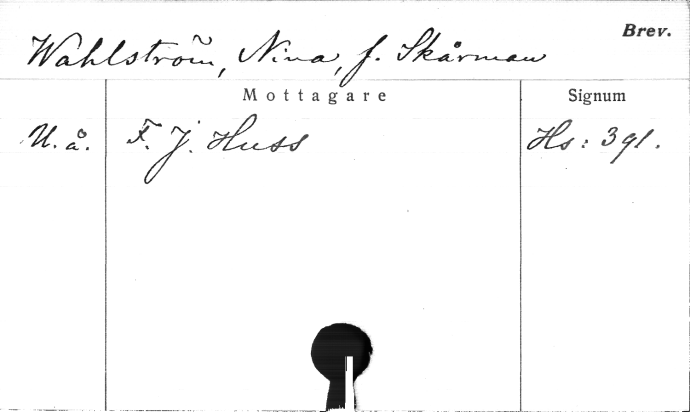 Brev.
Wahlström, Nina, f. Skårman
Mottagare Signum
U. å. F. J. Huss Hs: 391.